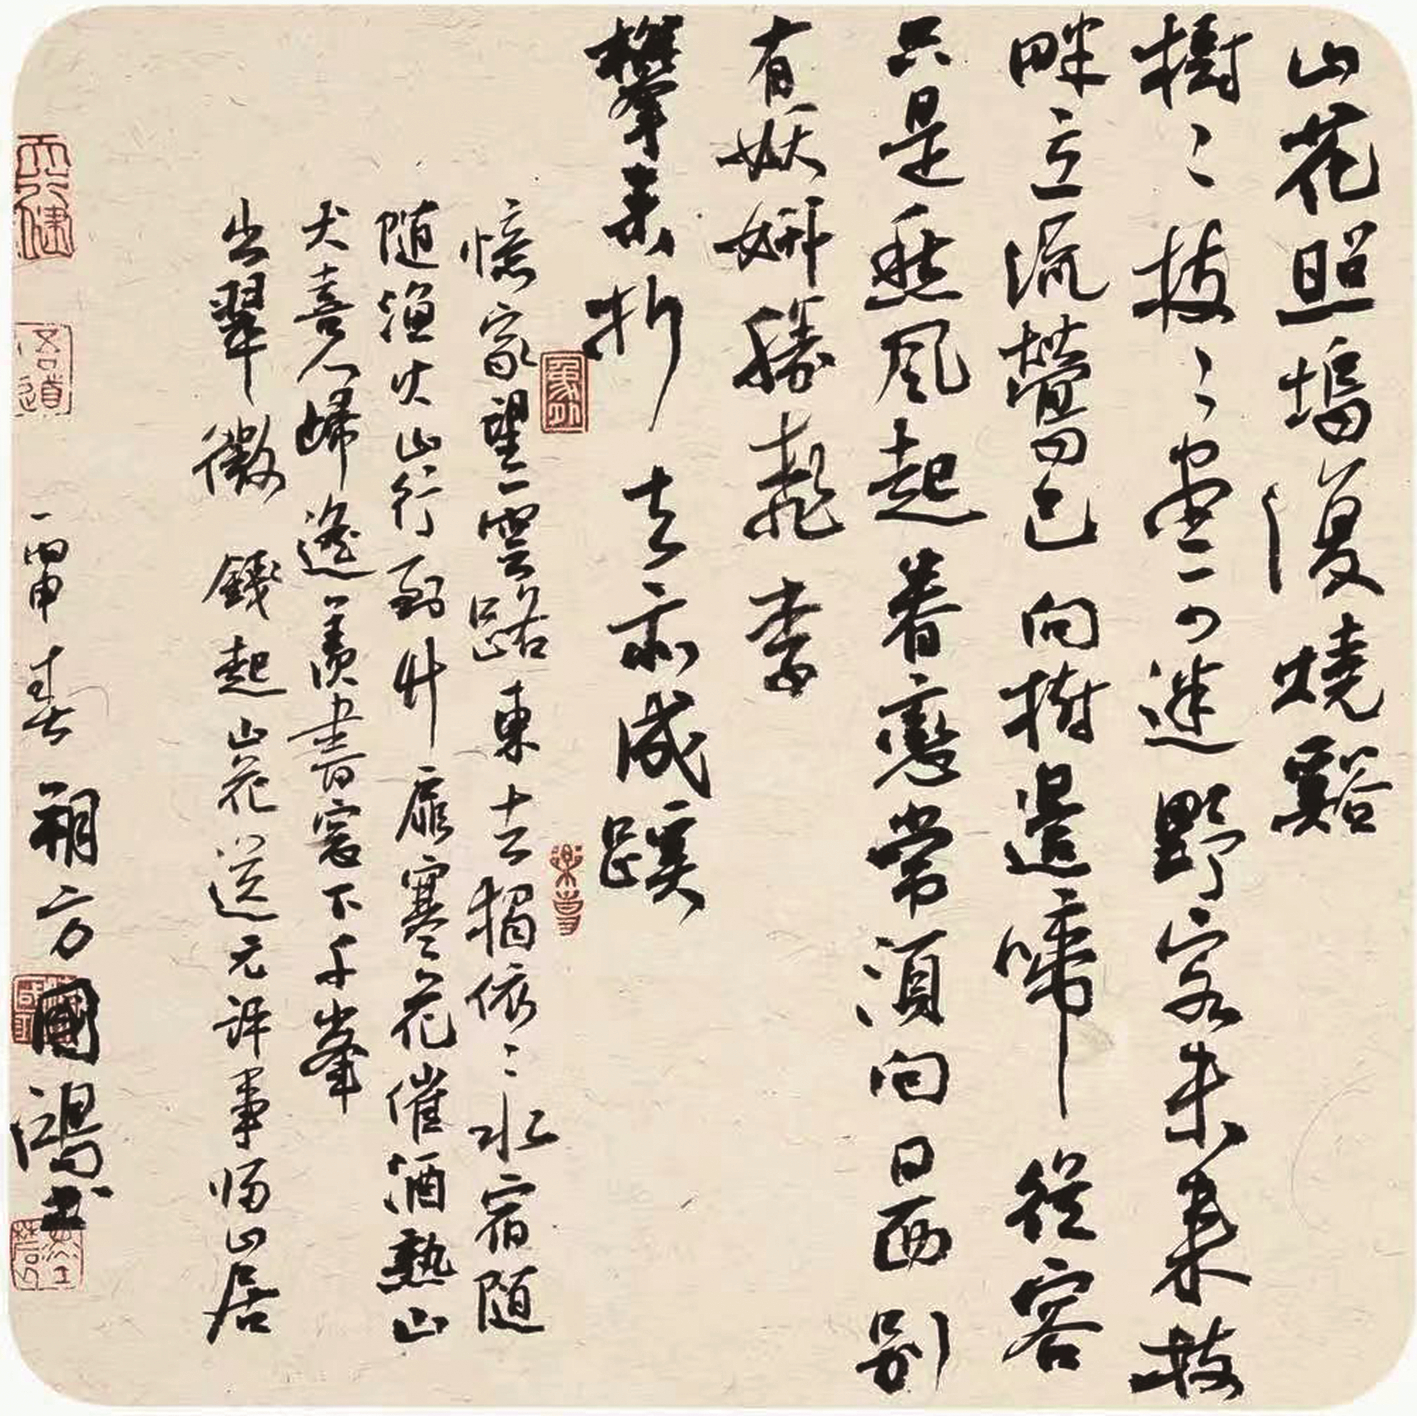 山花照塢復燒谿
樹〻枝〻盡可迷野客未來枝
畔立流鶯已向樹邊啼從容
只是愁風起眷戀常須向日西別
有妖妍勝桃李
攀來折去亦成蹊
憶家望雲路東去獨依〻水宿隨
隨漁火山行到竹扉寒花催酒熟山
犬喜人歸遙羨書窗下千峰
出翠微 錢起山花送元評事歸山居
丙申春朔方國鴻書
天行健
悟道